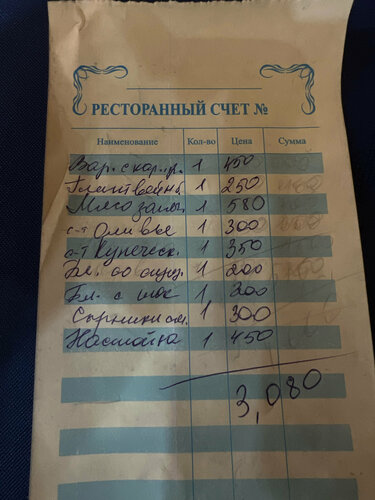 РЕСТОРАННЫЙ СЧЕТ №
Наименование Кол-во Цена Сумма
Вар. с кар. гр. 1 450
1 250
Мясо запеч. 1 580
с-т Оливье 1 300
с-т Купеческ. 1 350
Бл. со 1 200
Бл. с 1 200
Сырники см. 1 300
Настойка 1 450
3,080